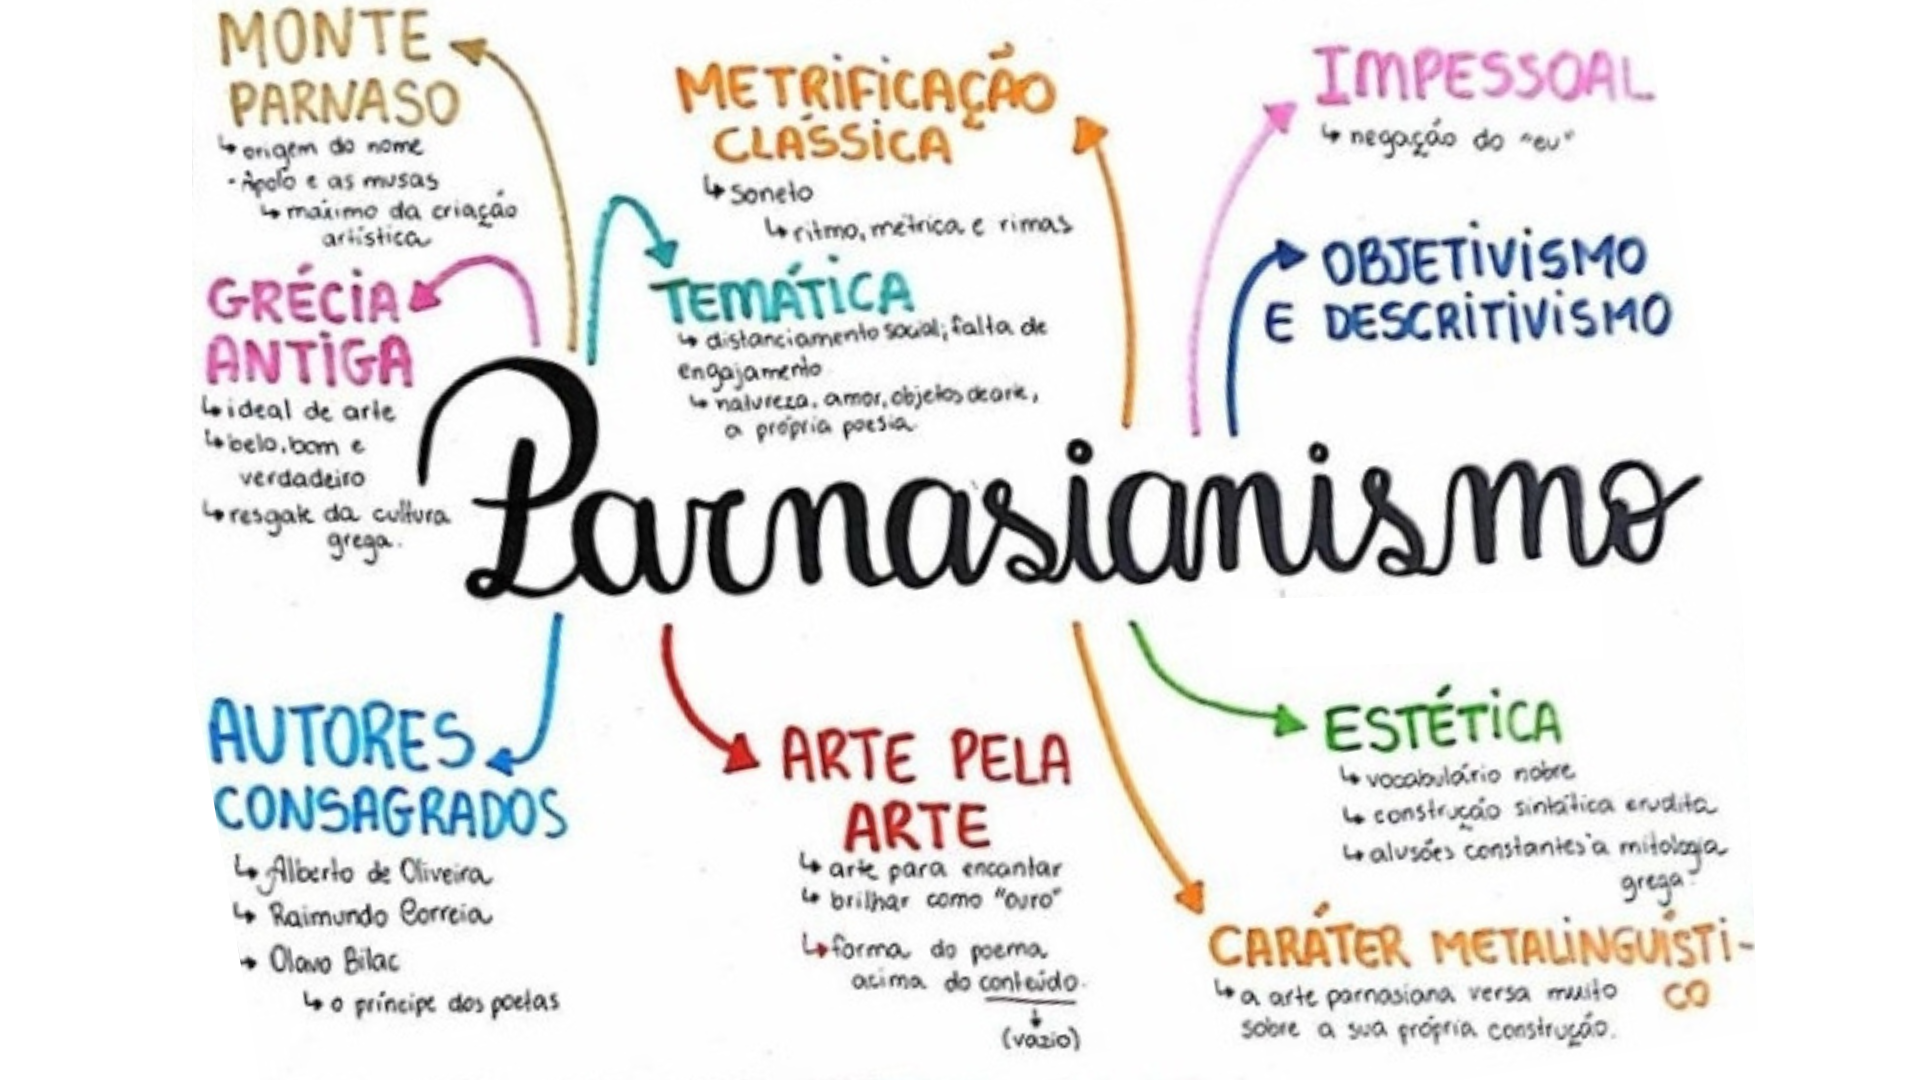 MONTE
PARNASO
↳ origem do nome
· Apolo e as musas
↳ máximo da criação
artística
GRÉCIA
ANTIGA
↳ ideal de arte
↳ belo, bom e
verdadeiro
↳ resgate da cultura
grega.
METRIFICAÇÃO
CLÁSSICA
↳ Soneto
↳ ritmo, métrica e rimas
TEMÁTICA
↳ distanciamento social; falta de
engajamento
↳ natureza, amor, objetos de arte,
a própria poesia.
IMPESSOAL
↳ negação do "eu"
OBJETIVISMO
E DESCRITIVISMO
Parnasianismo
AUTORES
CONSAGRADOS
↳ Alberto de Oliveira
↳ Raimundo Correia
→ Olavo Bilac
↳ o príncipe dos poetas
ARTE PELA
ARTE
↳ arte para encantar
↳ brilhar como "ouro"
↳ forma do poema
acima do conteúdo.
↓
(vazio)
ESTÉTICA
↳ vocabulário nobre
↳ construção sintática erudita
↳ alusões constantes à mitologia
grega.
CARÁTER METALINGUÍSTI-
CO
↳ a arte parnasiana versa muito
sobre a sua própria construção.